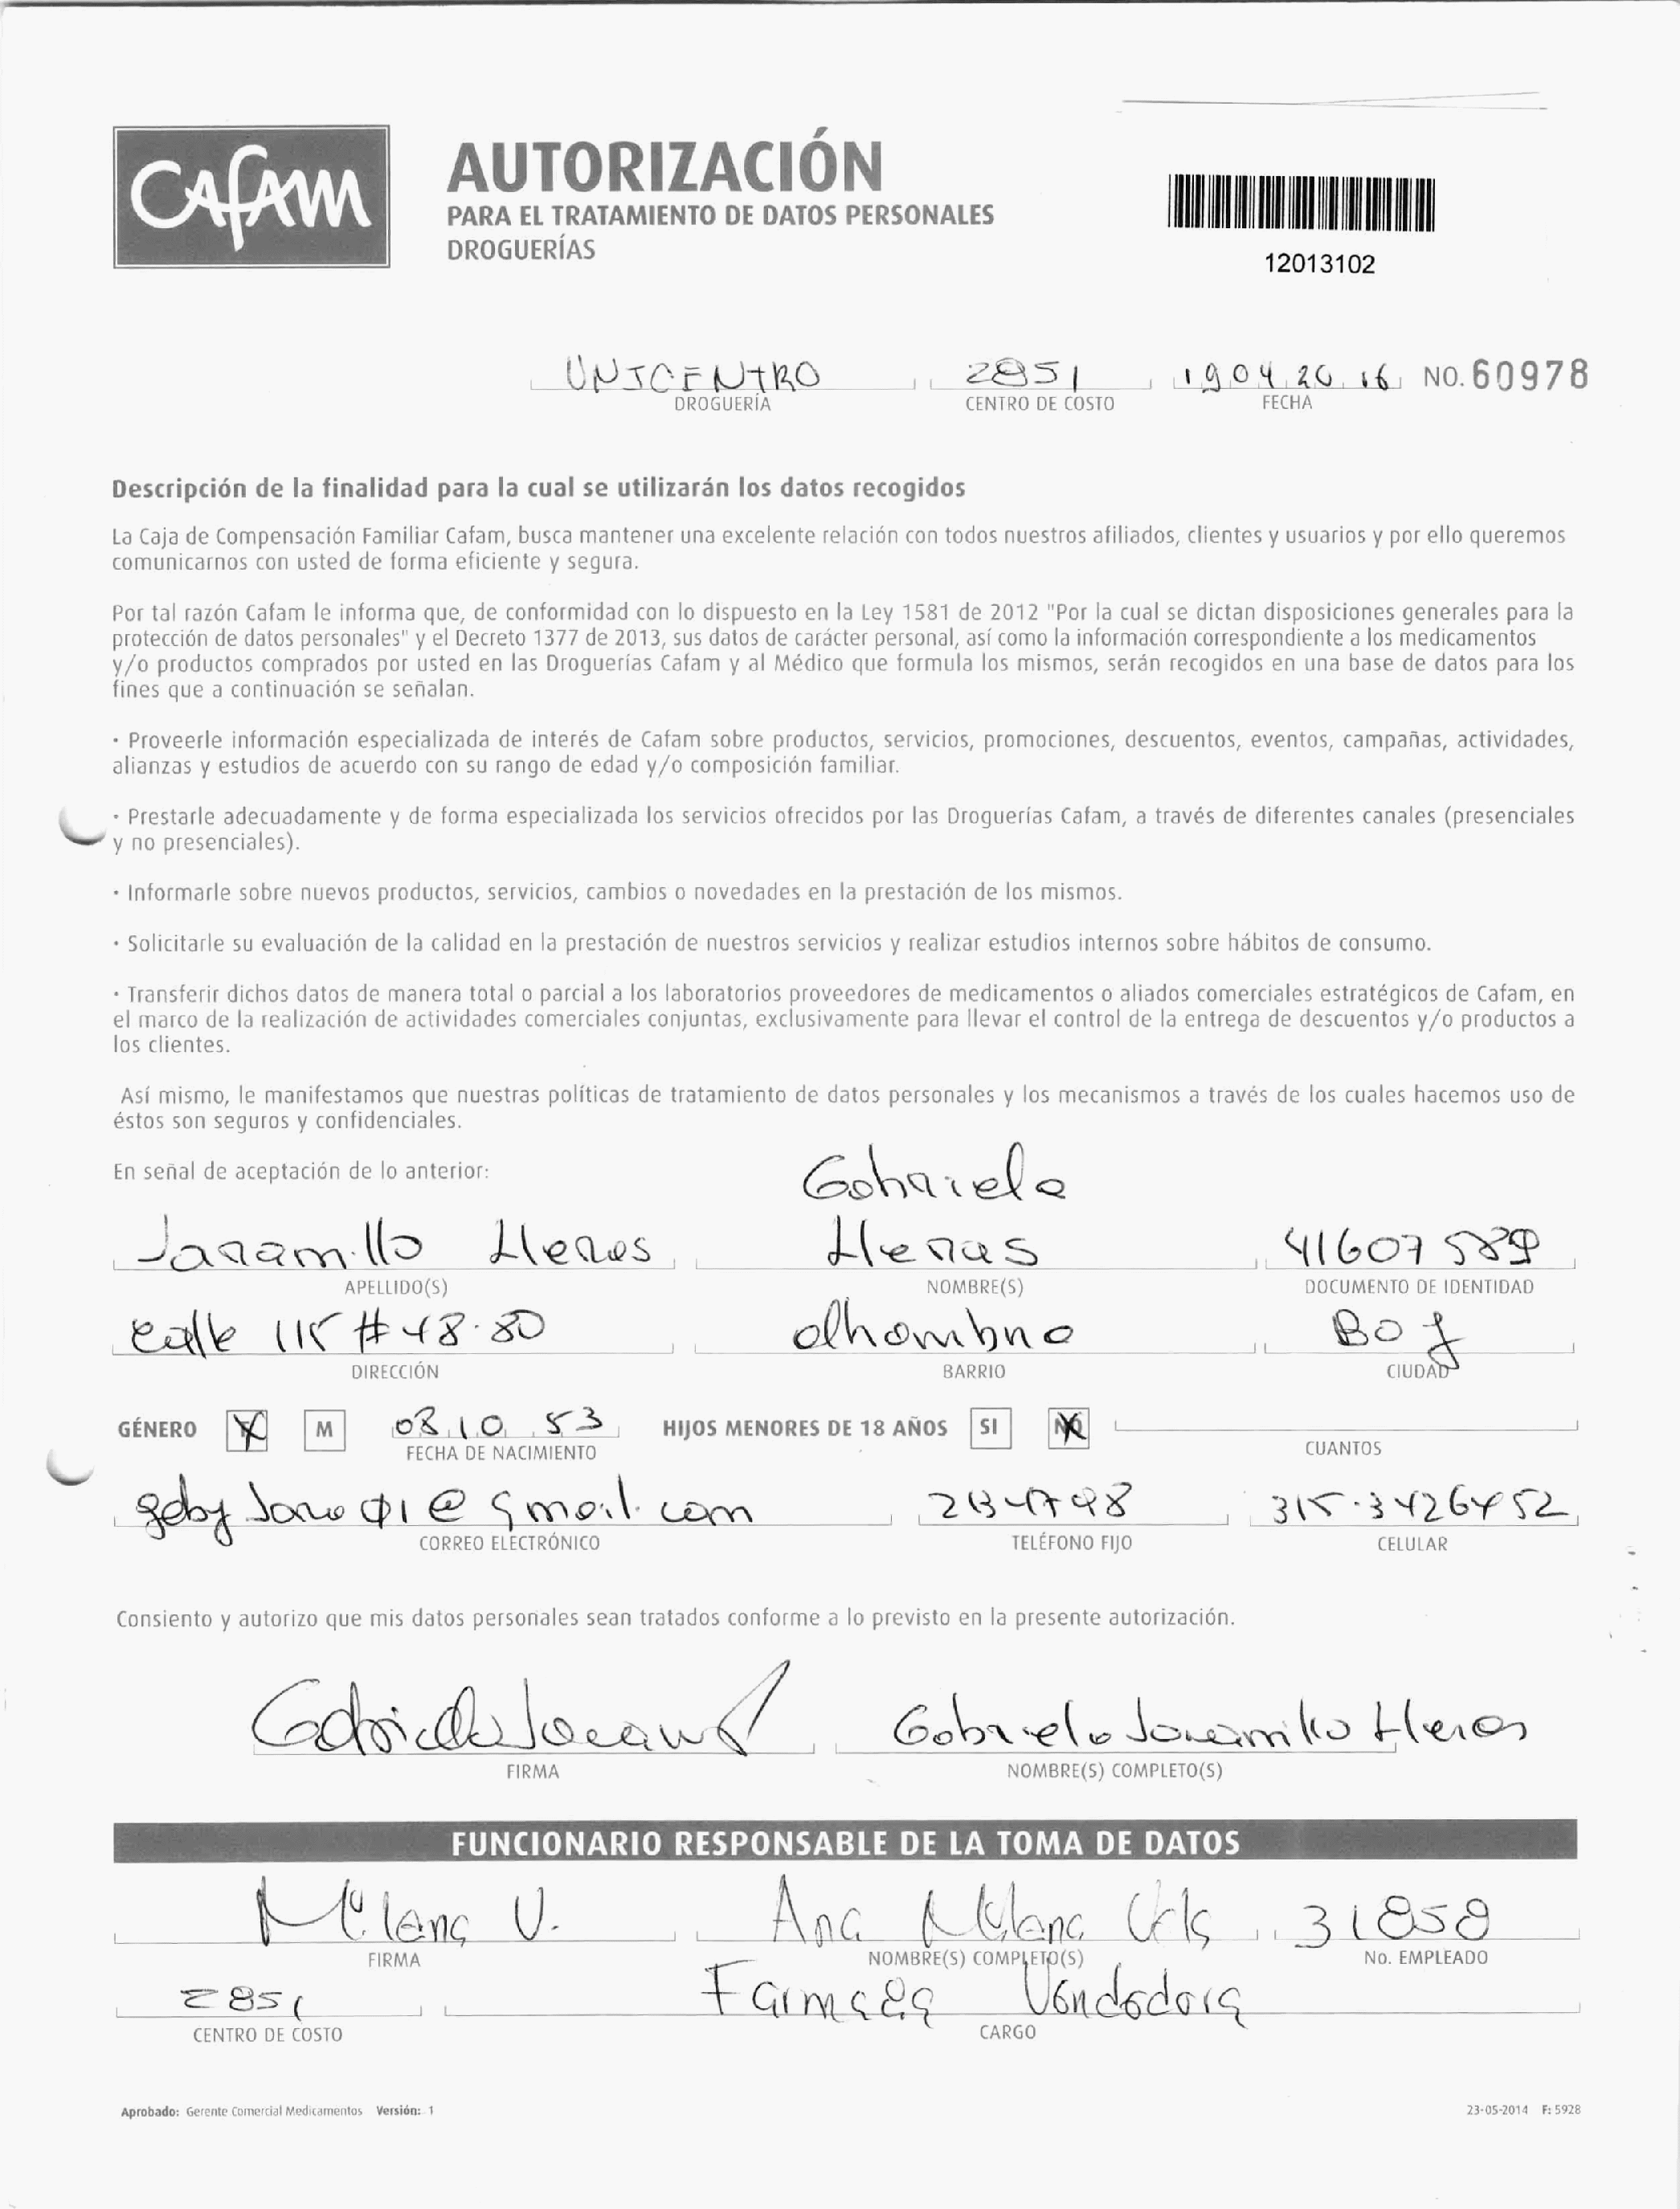 CAFAM
AUTORIZACIÓN
PARA EL TRATAMIENTO DE DATOS PERSONALES
DROGUERÍAS
12013102
UNICENTRO 2851 19 04 20 16 NO. 60978
DROGUERÍA CENTRO DE COSTO FECHA
Descripción de la finalidad para la cual se utilizarán los datos recogidos
La Caja de Compensación Familiar Cafam, busca mantener una excelente relación con todos nuestros afiliados, clientes y usuarios y por ello queremos
comunicarnos con usted de forma eficiente y segura.
Por tal razón Cafam le informa que, de conformidad con lo dispuesto en la Ley 1581 de 2012 "Por la cual se dictan disposiciones generales para la
protección de datos personales" y el Decreto 1377 de 2013, sus datos de carácter personal, así como la información correspondiente a los medicamentos
y/o productos comprados por usted en las Droguerías Cafam y al Médico que formula los mismos, serán recogidos en una base de datos para los
fines que a continuación se señalan.
· Proveerle información especializada de interés de Cafam sobre productos, servicios, promociones, descuentos, eventos, campañas, actividades,
alianzas y estudios de acuerdo con su rango de edad y/o composición familiar.
· Prestarle adecuadamente y de forma especializada los servicios ofrecidos por las Droguerías Cafam, a través de diferentes canales (presenciales
y no presenciales).
· Informarle sobre nuevos productos, servicios, cambios o novedades en la prestación de los mismos.
· Solicitarle su evaluación de la calidad en la prestación de nuestros servicios y realizar estudios internos sobre hábitos de consumo.
· Transferir dichos datos de manera total o parcial a los laboratorios proveedores de medicamentos o aliados comerciales estratégicos de Cafam, en
el marco de la realización de actividades comerciales conjuntas, exclusivamente para llevar el control de la entrega de descuentos y/o productos a
los clientes.
Así mismo, le manifestamos que nuestras políticas de tratamiento de datos personales y los mecanismos a través de los cuales hacemos uso de
éstos son seguros y confidenciales.
En señal de aceptación de lo anterior: Gabriela
Jaramillo Lleras Lleras 41607589
APELLIDO(S) NOMBRE(S) DOCUMENTO DE IDENTIDAD
calle 115 # 48-80 alhambra Bog
DIRECCIÓN BARRIO CIUDAD
GÉNERO X M 08 10 53 HIJOS MENORES DE 18 AÑOS SI NO
FECHA DE NACIMIENTO CUANTOS
@gmail.com 315-3426452
CORREO ELECTRÓNICO TELÉFONO FIJO CELULAR
Consiento y autorizo que mis datos personales sean tratados conforme a lo previsto en la presente autorización.
Gabriela Jaramillo Lleras
FIRMA NOMBRE(S) COMPLETO(S)
FUNCIONARIO RESPONSABLE DE LA TOMA DE DATOS
Milena V. Ana Milena 31858
FIRMA NOMBRE(S) COMPLETO(S) No. EMPLEADO
2851 Vendedora
CENTRO DE COSTO CARGO
Aprobado: Gerente Comercial Medicamentos Versión: 1 23-05-2014 F: 5928